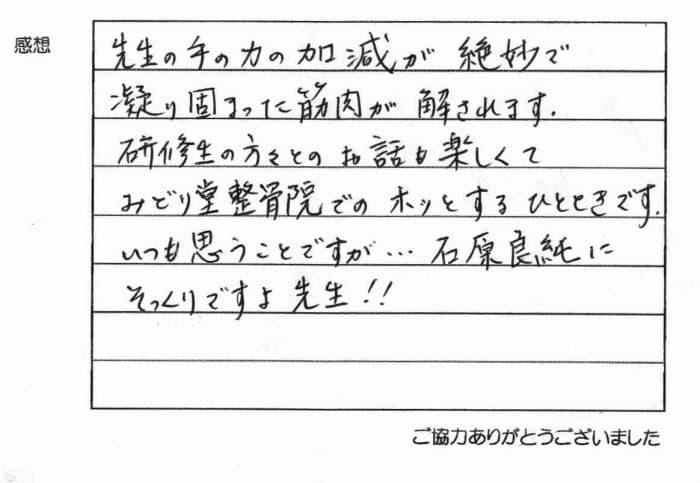 感想
先生の手の力の加減が 絶妙で
凝り固まった筋肉が 解されます.
研修生の方々とのお話も楽しくて
みどり堂整骨院でのホッとするひとときです.
いつも思うことですが… 石原良純に
そっくりですよ先生!!
ご協力ありがとうございました